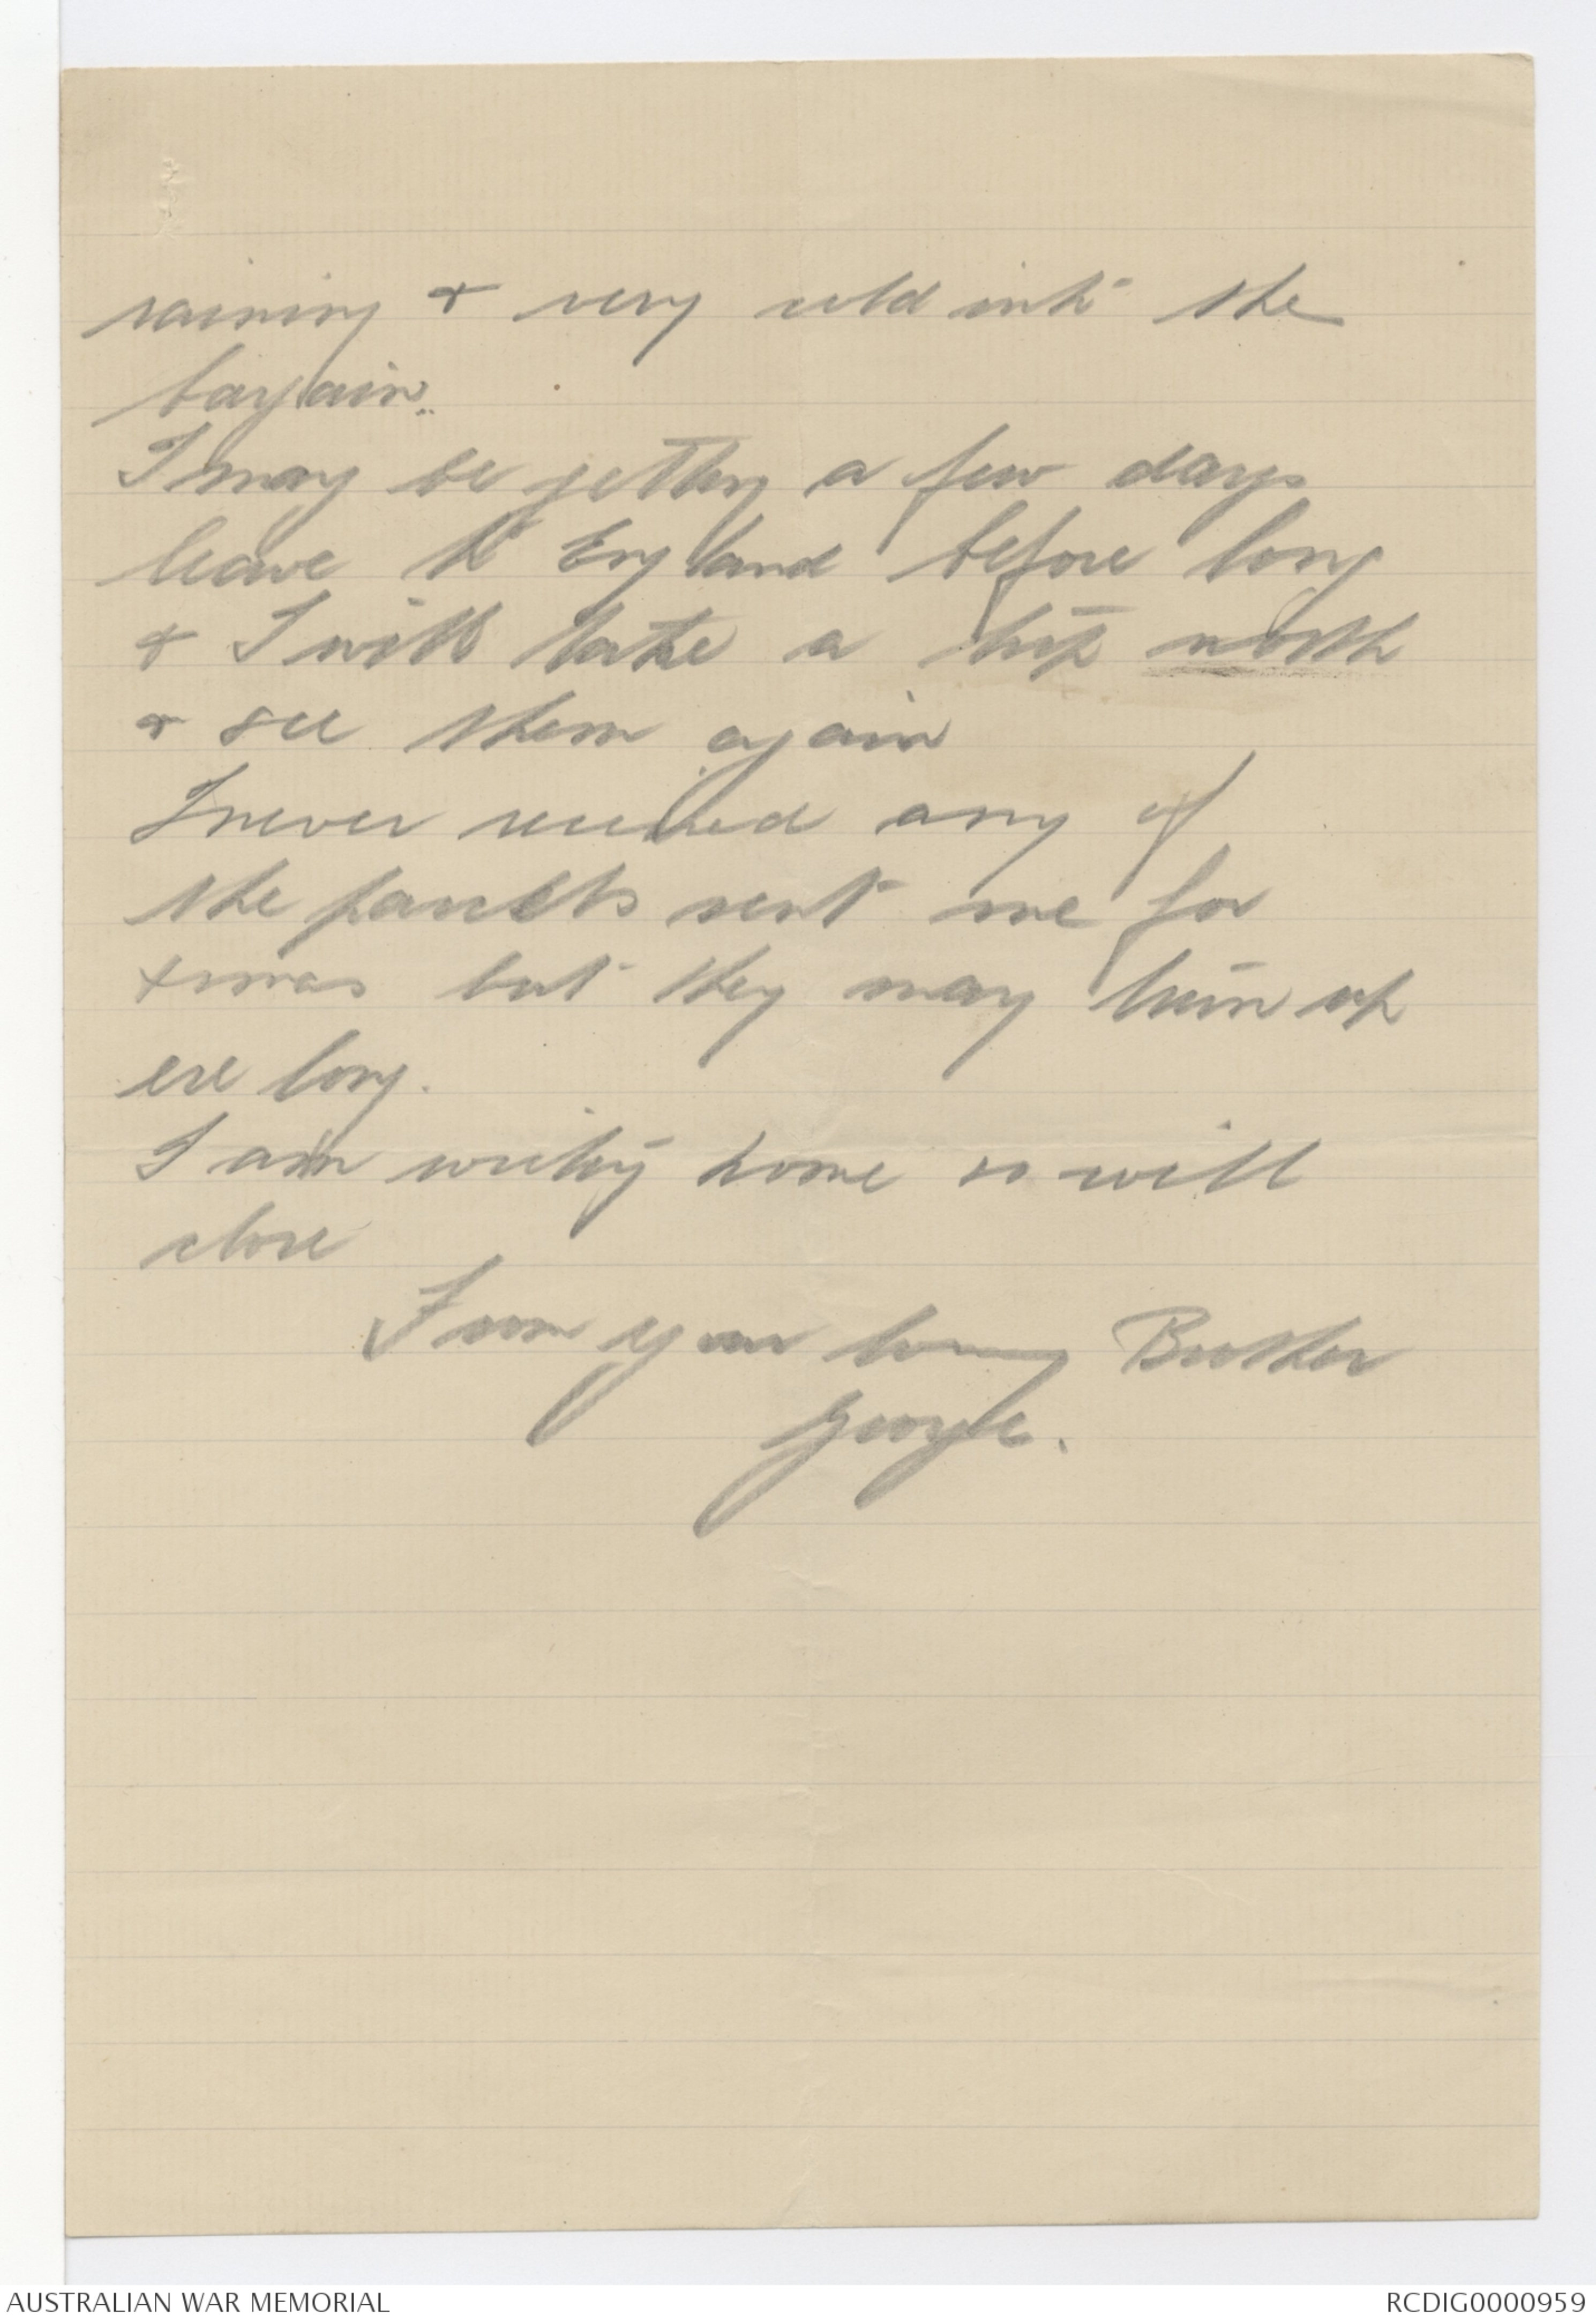 raining & very cold into the
bargain.
I may be getting a few days
leave to England before long
& I will take a trip north
& see them again
I never received any of
the parcels sent me for
xmas but they may turn up
ere long.
I am writing home so will
close
From your loving Brother
George.
AUSTRALIAN WAR MEMORIAL
RCDIG0000959